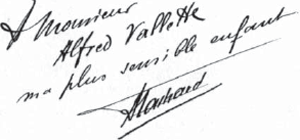 A Monsieur
Alfred Vallette
ma plus sensible enfant